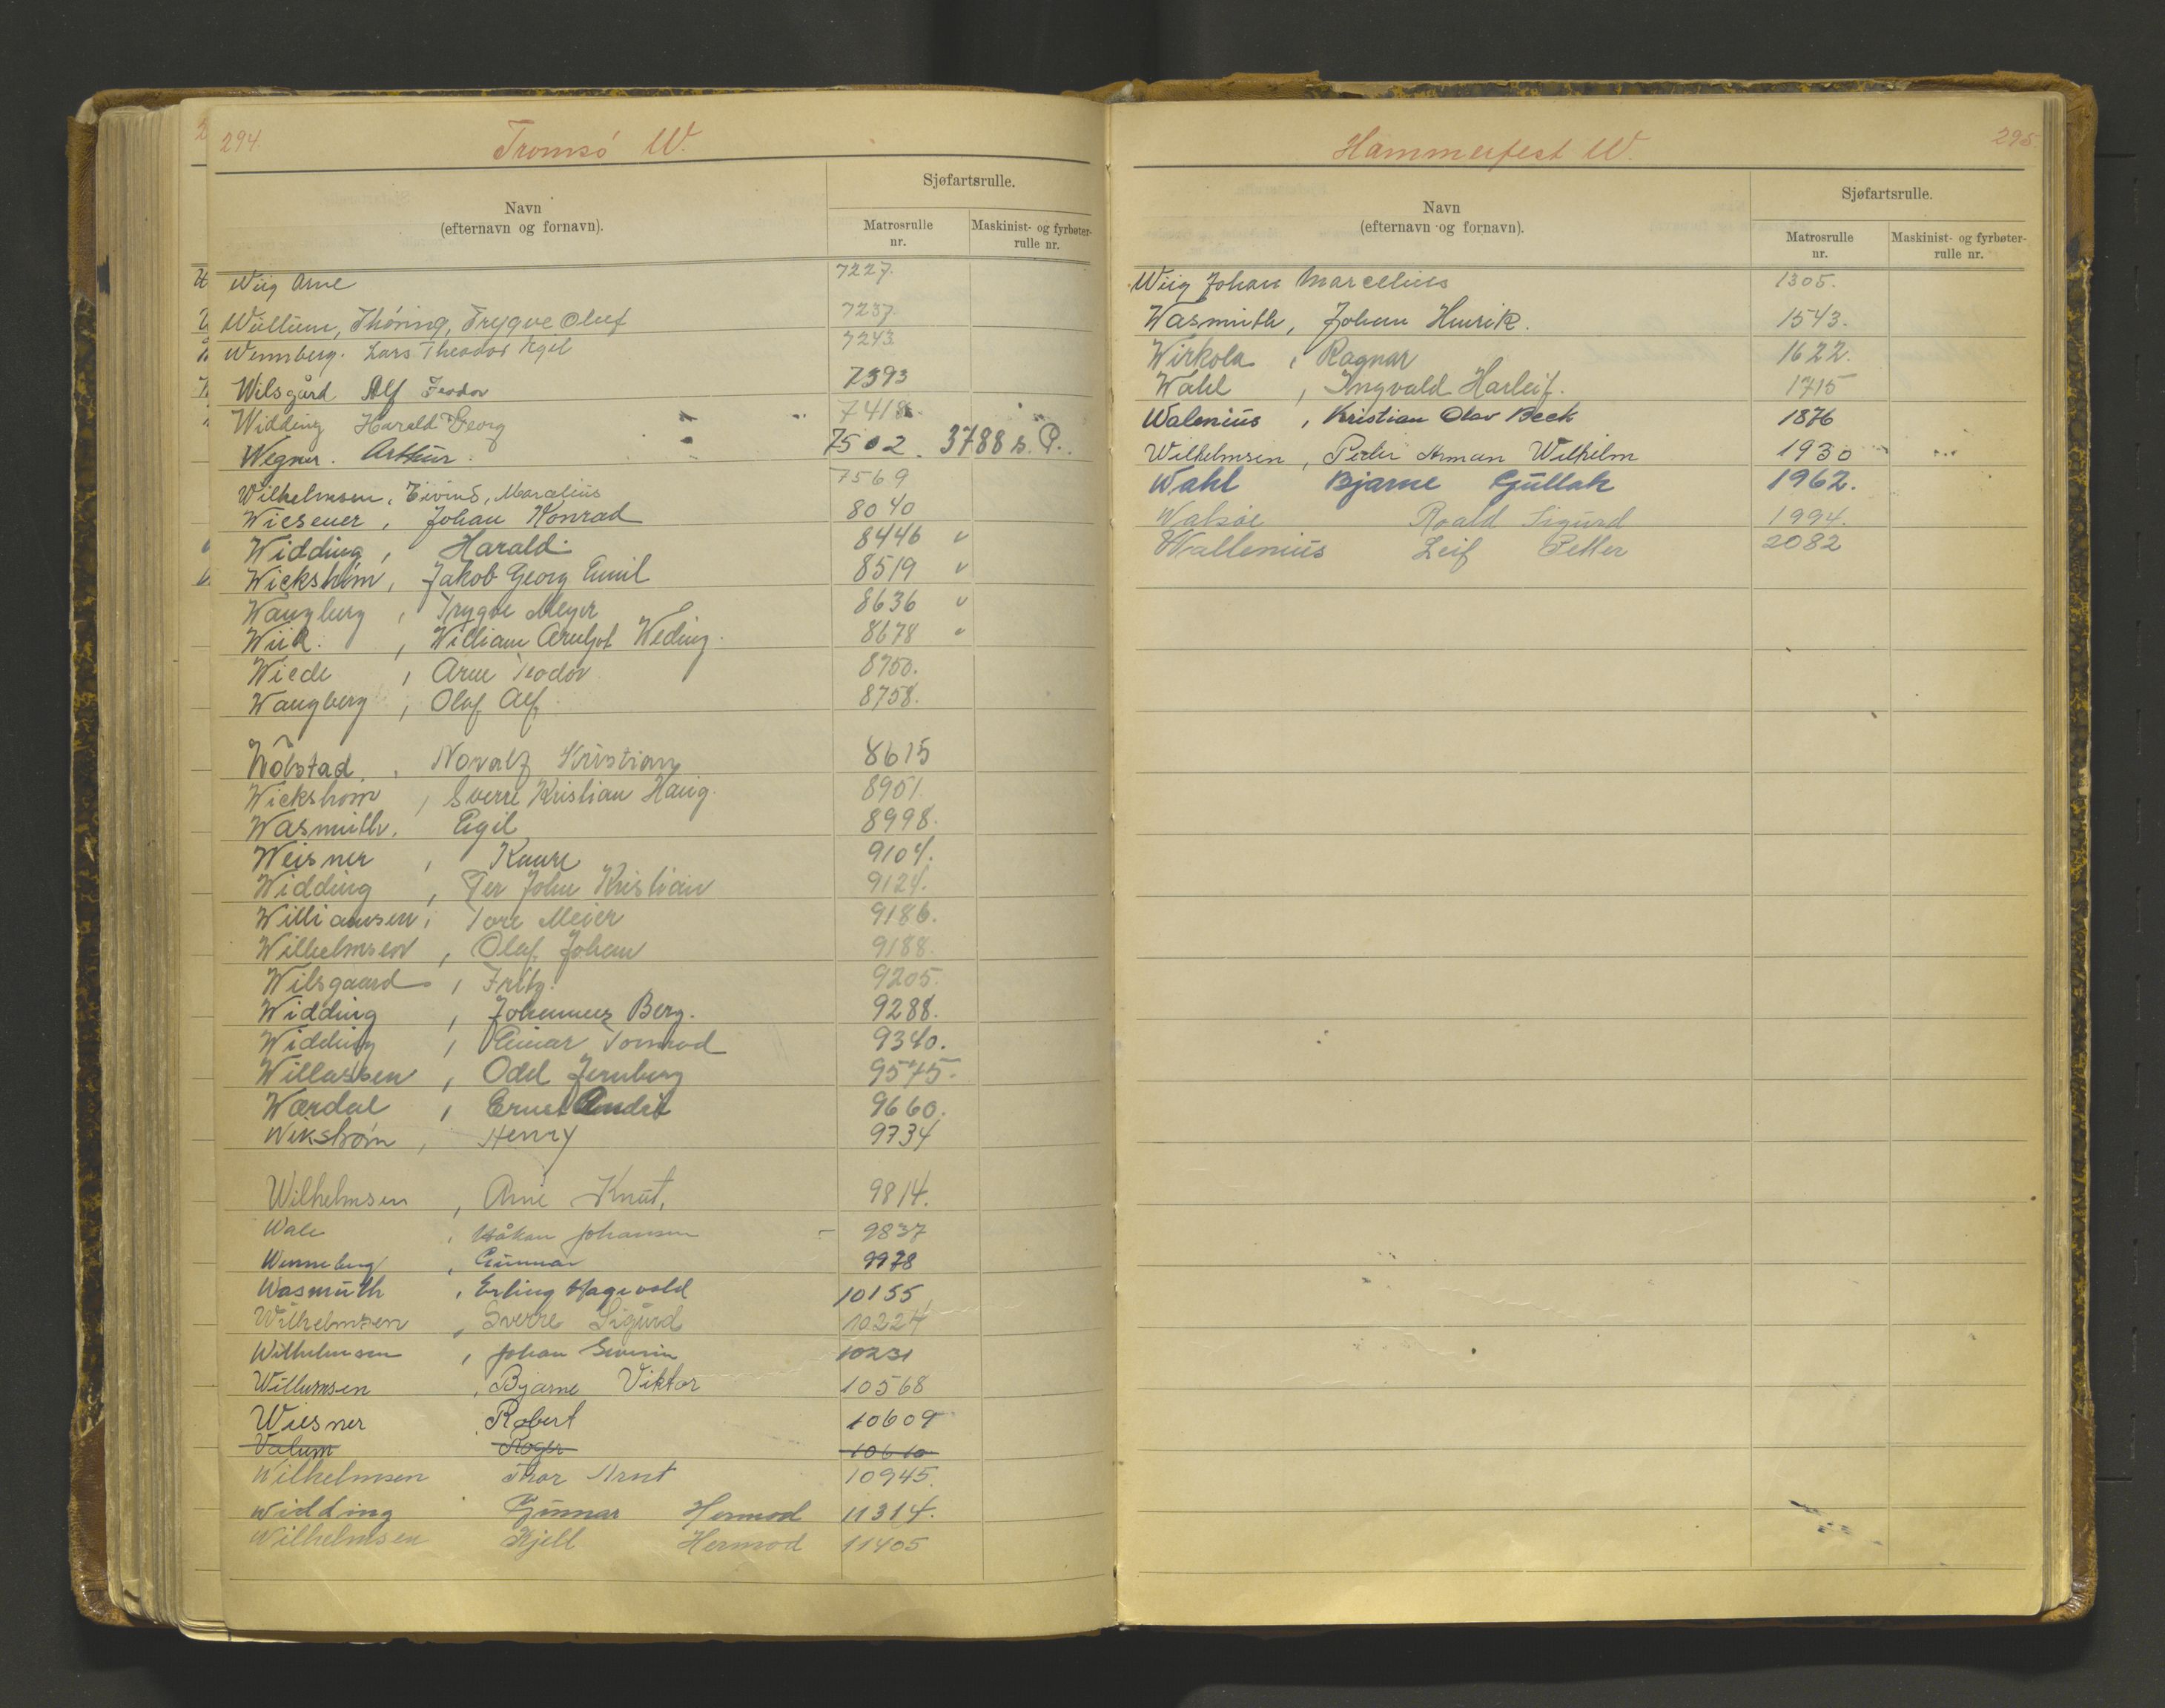 294.
Tromsø W.
Navn
(efternavn og fornavn).
Sjøfartsrulle.
Matrosrulle
nr.
Maskinist- og fyrbøter-
rulle nr.
Wiig Arne 7227.
Wüllum, Thóning, Trygve Oluf 7237.
Wennberg. Lars Theodor Egil 7243
Wilsgård Alf Feodor 7393
Widding Harald Georg 7418.
Wegner. Arthur. 7502. 3788 s. P.
Wilhelmsen, Eivind, Marcelius 7569
Wiesener, Johan Konrad 8040
Widding, Harald 8446 v
Wickstrøm, Jakob Georg Emil 8519 v
Wangberg, Trygve Meyer 8636 v
Wiik, William Arnljot Weding. 8678 v
Wiede, Arne Teodor 8750.
Wangberg, Olaf Alf. 8758.
Wólstad, Noralf Kristian 8615
Wickstrøm, Sverre Kristian Haug. 8901.
Wasmuth, Egil 8998.
Weisner, Kaare 9104.
Widding, Per John Kristian 9124.
Williamsen, Tore Meier 9186.
Wilhelmsen, Olaf Johan 9188.
Wilsgaard, Fritz. 9205.
Widding, Johannes Berg. 9288.
Widding, Einar Tormod 9340.
Willassen, Odd Jernberg 9575.
Wærdal, Ernst 9660.
Wikstrøm, Henry 9734
Wilhelmsen, Arne Knut, 9814.
Wale, Håkon Johansen 9837
Wenneberg, Gunnar 9978
Wasmuth, Erling Hagevald 10155
Wilhelmsen, Sverre Sigurd 10224
Wilhelmsen, Johan Severin 10231
Willumsen, Bjarne Viktor 10568
Wiesner Robert 10609
Valum Roger 10610
Wilhelmsen Thor Arnt 10945.
Widding Gunnar Hermod 11314.
Wilhelmsen Kjell Hermod 11405
295.
Hammerfest W.
Navn
(efternavn og fornavn).
Sjøfartsrulle.
Matrosrulle
nr.
Maskinist- og fyrbøter-
rulle nr.
Wiig Johan Marcelius 1305.
Wasmuth, Johan Henrik. 1543.
Wirkola, Ragnar 1622.
Wahl, Ingvald Harleif. 1715
Walenius, Kristian Olav Beck 1876
Wilhelmsen, Peder Herman Wilhelm 1930
Wahl Bjarne Gullak 1962.
Walsøe Roald Sigurd 1994.
Wallenius Leif Petter 2082